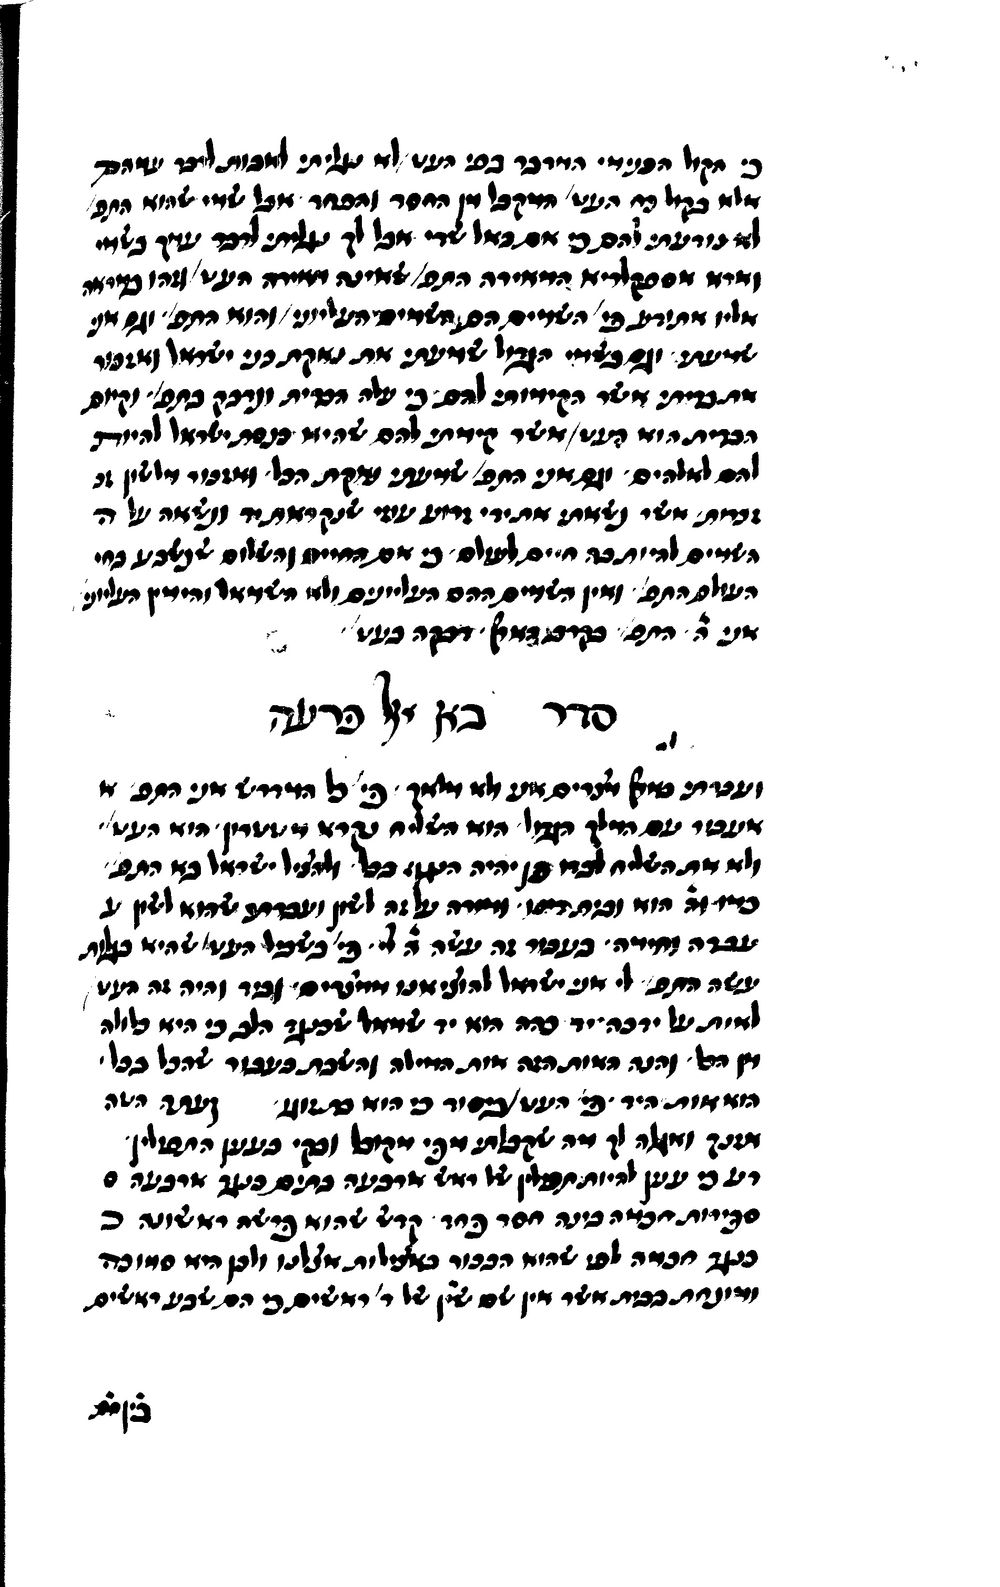 כי הקול הפנימי המדבר בפי העט׳ לא נגליתי לאבות לדבר עמהם
אלא בקול בת העט׳ המקבל מן החסד והפחד אבל שמי שהוא התפ׳
לא נודעתי להם כי אם באל שדי אבל לך נגליתי לדבר עמך בשמי
וארא אספקלריא המאירה התפ׳ שאינה מאירה העט׳ וזהו במראה
אליו אתודע פי׳ השמים הם השמים העליוני׳ והוא התפ׳ וגם אני
שמעתי וגם בשמי הגדול שמעתי את נאקת בני ישראל ואזכור
את בריתי אשר הקימותי להם כי עלה הברית ונדבק בתפ׳ וקיום
הברית הוא העט׳ אשר קימתי להם שהיא כנסת ישראל להיות
להם לאלהים וגם אני התפ׳ שמעתי צעקת הכל ואזכור מלשון זכ
זכרות אשר נשאתי את ידי זרוע עוזי שנקראת יד ונשאה על ה
השמים להיות בה חיים לעולם כי אם החיים והשלום שנשבע בחי
העולם התפ׳ ואין השמים ההם העליונים ולא השמאל והימין העליוני׳
אני ה׳ התפ׳ בקרב הארץ דבקה בעט׳
סדר בא אל פרעה
ועברתי בארץ מצרים אני ולא מלאך פי׳ כל המדרש אני התפ׳ א
אעבור עם המלך הגדול הוא השליח נקרא מטטרון הוא העט׳
ולא את השליח לבדו פן יהיה הנגף בכל ולהציל ישראל בא התפ׳
כמו וה׳ הוא ובית דינו ומורה על זה לשון ועברתי שהוא לשון ע
עברה וחימה בעבור זה עשה ה׳ לי פי׳ בשביל העט׳ שהיא בגלות
עשה התפ׳ לי אני ישראל להוציאנו ממצרים וכנגד והיה זה העט׳
לאות על ידכה יד כהה הוא יד שמאל שכנגד הלב כי היא כלולה
מן הכל והנה האות הזה אות המילה והשבת בעבור שהכל בכל
הוא אות היד פי׳ העט׳ ביסוד כי הוא ועתה הטה
אזנך ואגלה לך מה שקבלתי מפי מקובל ובקי בענין התפילין
דע כי ענין להיות תפילין של ראש ארבעה בתים כנגד ארבעה ס
ספירות חכמה בינה חסד פחד קדש שהוא פרשה ראשונה כ
כנגד חכמה לפי שהוא הבכור באצילות אצלנו ולכן היא סמוכה
ומונחת בבית אשר אין שם שין של ד׳ ראשים כי הם שבע ראשים